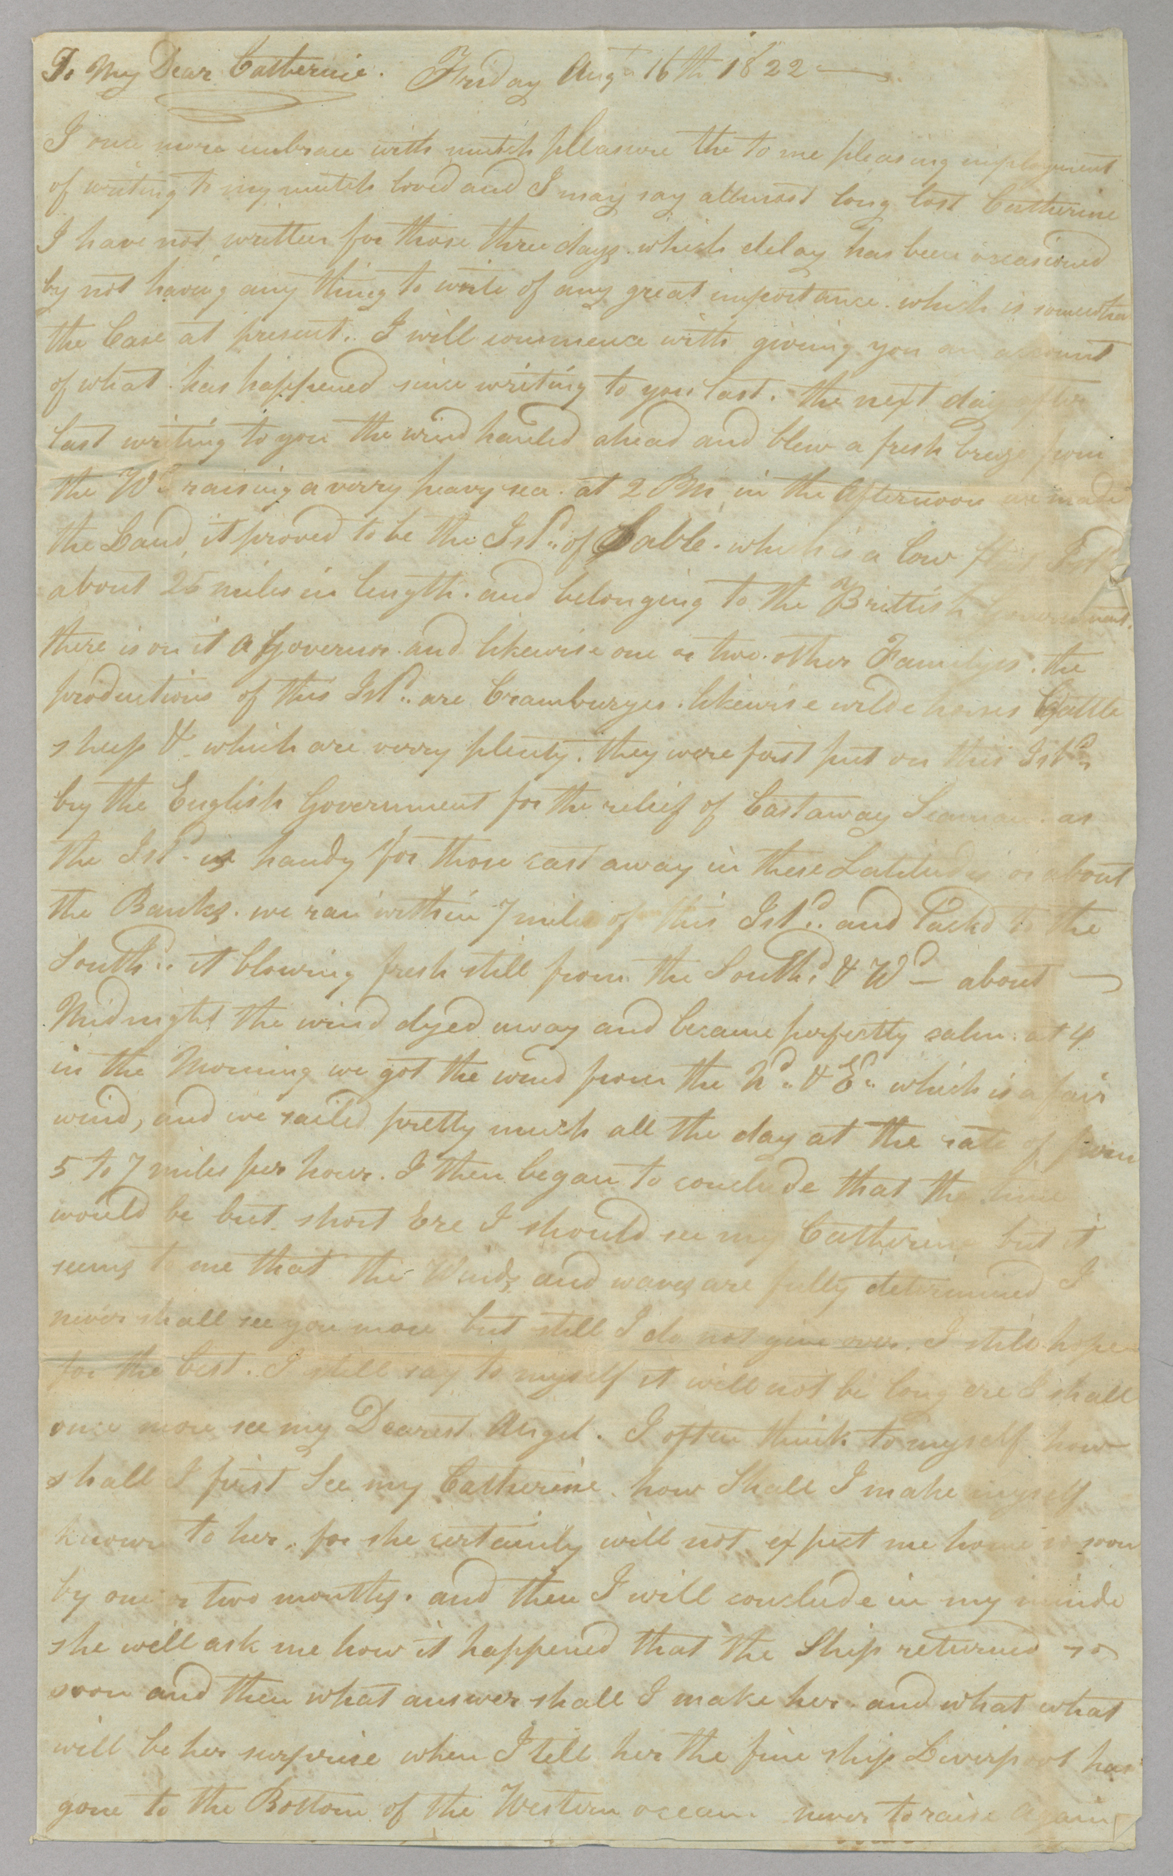 To My Dear Catherine. Friday Augt 16th 1822
I once more embrace with mutch pleasure the to me pleasing employment
of writing to my mutch loved and I may say allmost long lost Catherine
I have not written for those three days. which delay has been occasioned
by not having any thing to write of any great importance. which is somewhat
the Case at present. I will commence with giving you an account
of what has happened since writing to you last. the next day after
last writing to you the wind hauled ahead and blew a fresh breeze from
the Wd raising a verry heavy sea. at 2 PM in the Afternoon we made
the Land, it proved to be the Isld of Sable. which is a low flat Isld
about 25 miles in length. and belonging to the Brittish Government.
there is on it a Governor. and likewise one or two other Familyes. the
productions of this Isld are Cramburyes. likewise wilde horses Cattle
sheep & which are verry plenty. they were first put on this Isld
by the English Government for the relief of Castaway Seaman. as
the Isld is handy for those cast away in these Latitudes or about
the Banks. we ran within 7 miles of this Isld. and Tackd to the
Southd it blowing fresh still from the Southd & Wd about
Midnight the wind dyed away and became perfectly calm. at 4
in the Morning we got the wind from the Nd & Ed which is a fair
wind, and we sailed pretty much all the day at the rate of from
5 to 7 miles per hour. I then began to conclude that the time
would be but short Ere I should see my Catherine but it
seems to me that the Winds and waves are fully determined I
never shall see you more but still I do not give over. I still hope
for the best. I still say to myself it will not be long ere I shall
once more see my Dearest Angel. I often think to myself how
shall I first See my Catherine. how Shall I make myself
known to her, for she certainly will not expect me home so soon
by one or two months. and then I will conclude in my minde
she will ask me how it happened that the Ship returned so
soon and then what answer shall I make her. and what what
will be her surprise when I tell her the fine ship Liverpool has
gone to the Bottom of the Western ocean never to raise Again